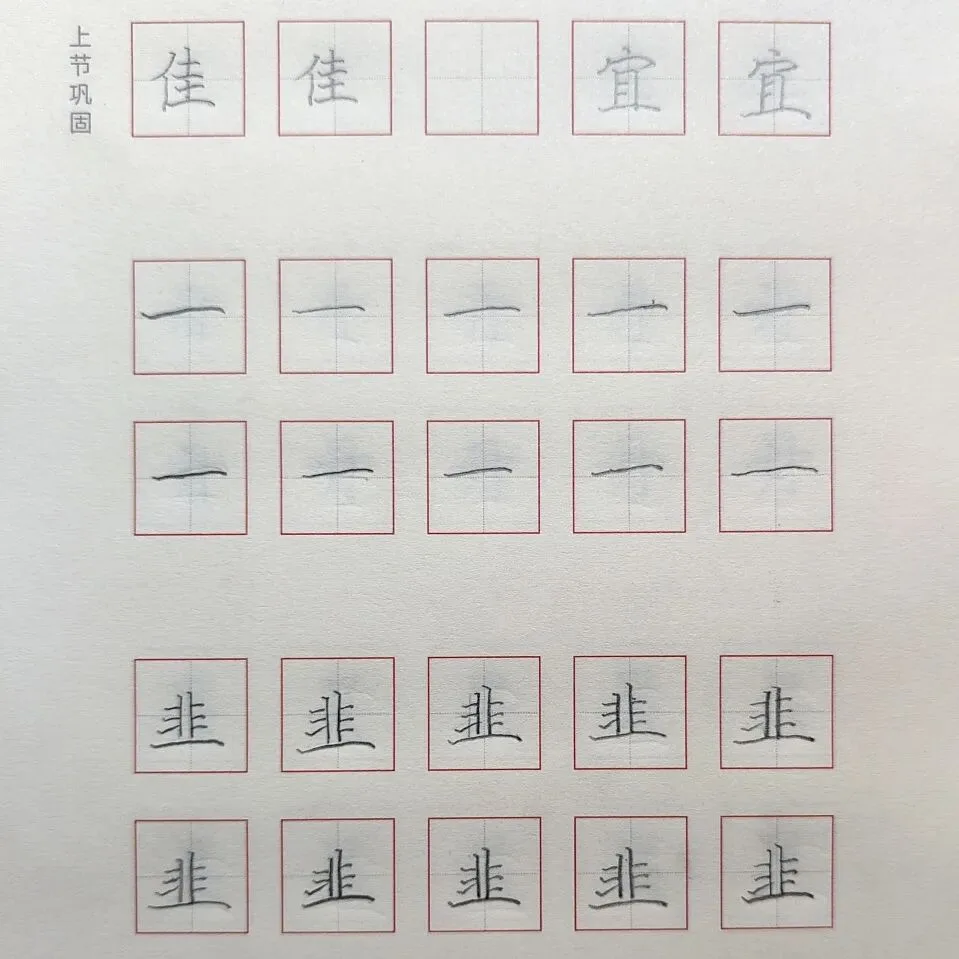 上节巩固
佳 佳 宜 宜
一 一 一 一 一
一 一 一 一 一
韭 韭 韭 韭 韭
韭 韭 韭 韭 韭